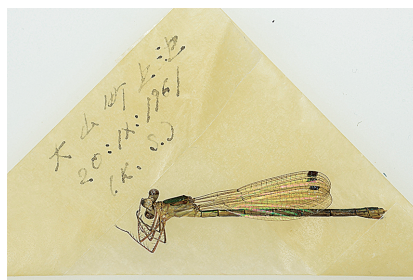 大山町上池
20:IX:1961
(K. S.)